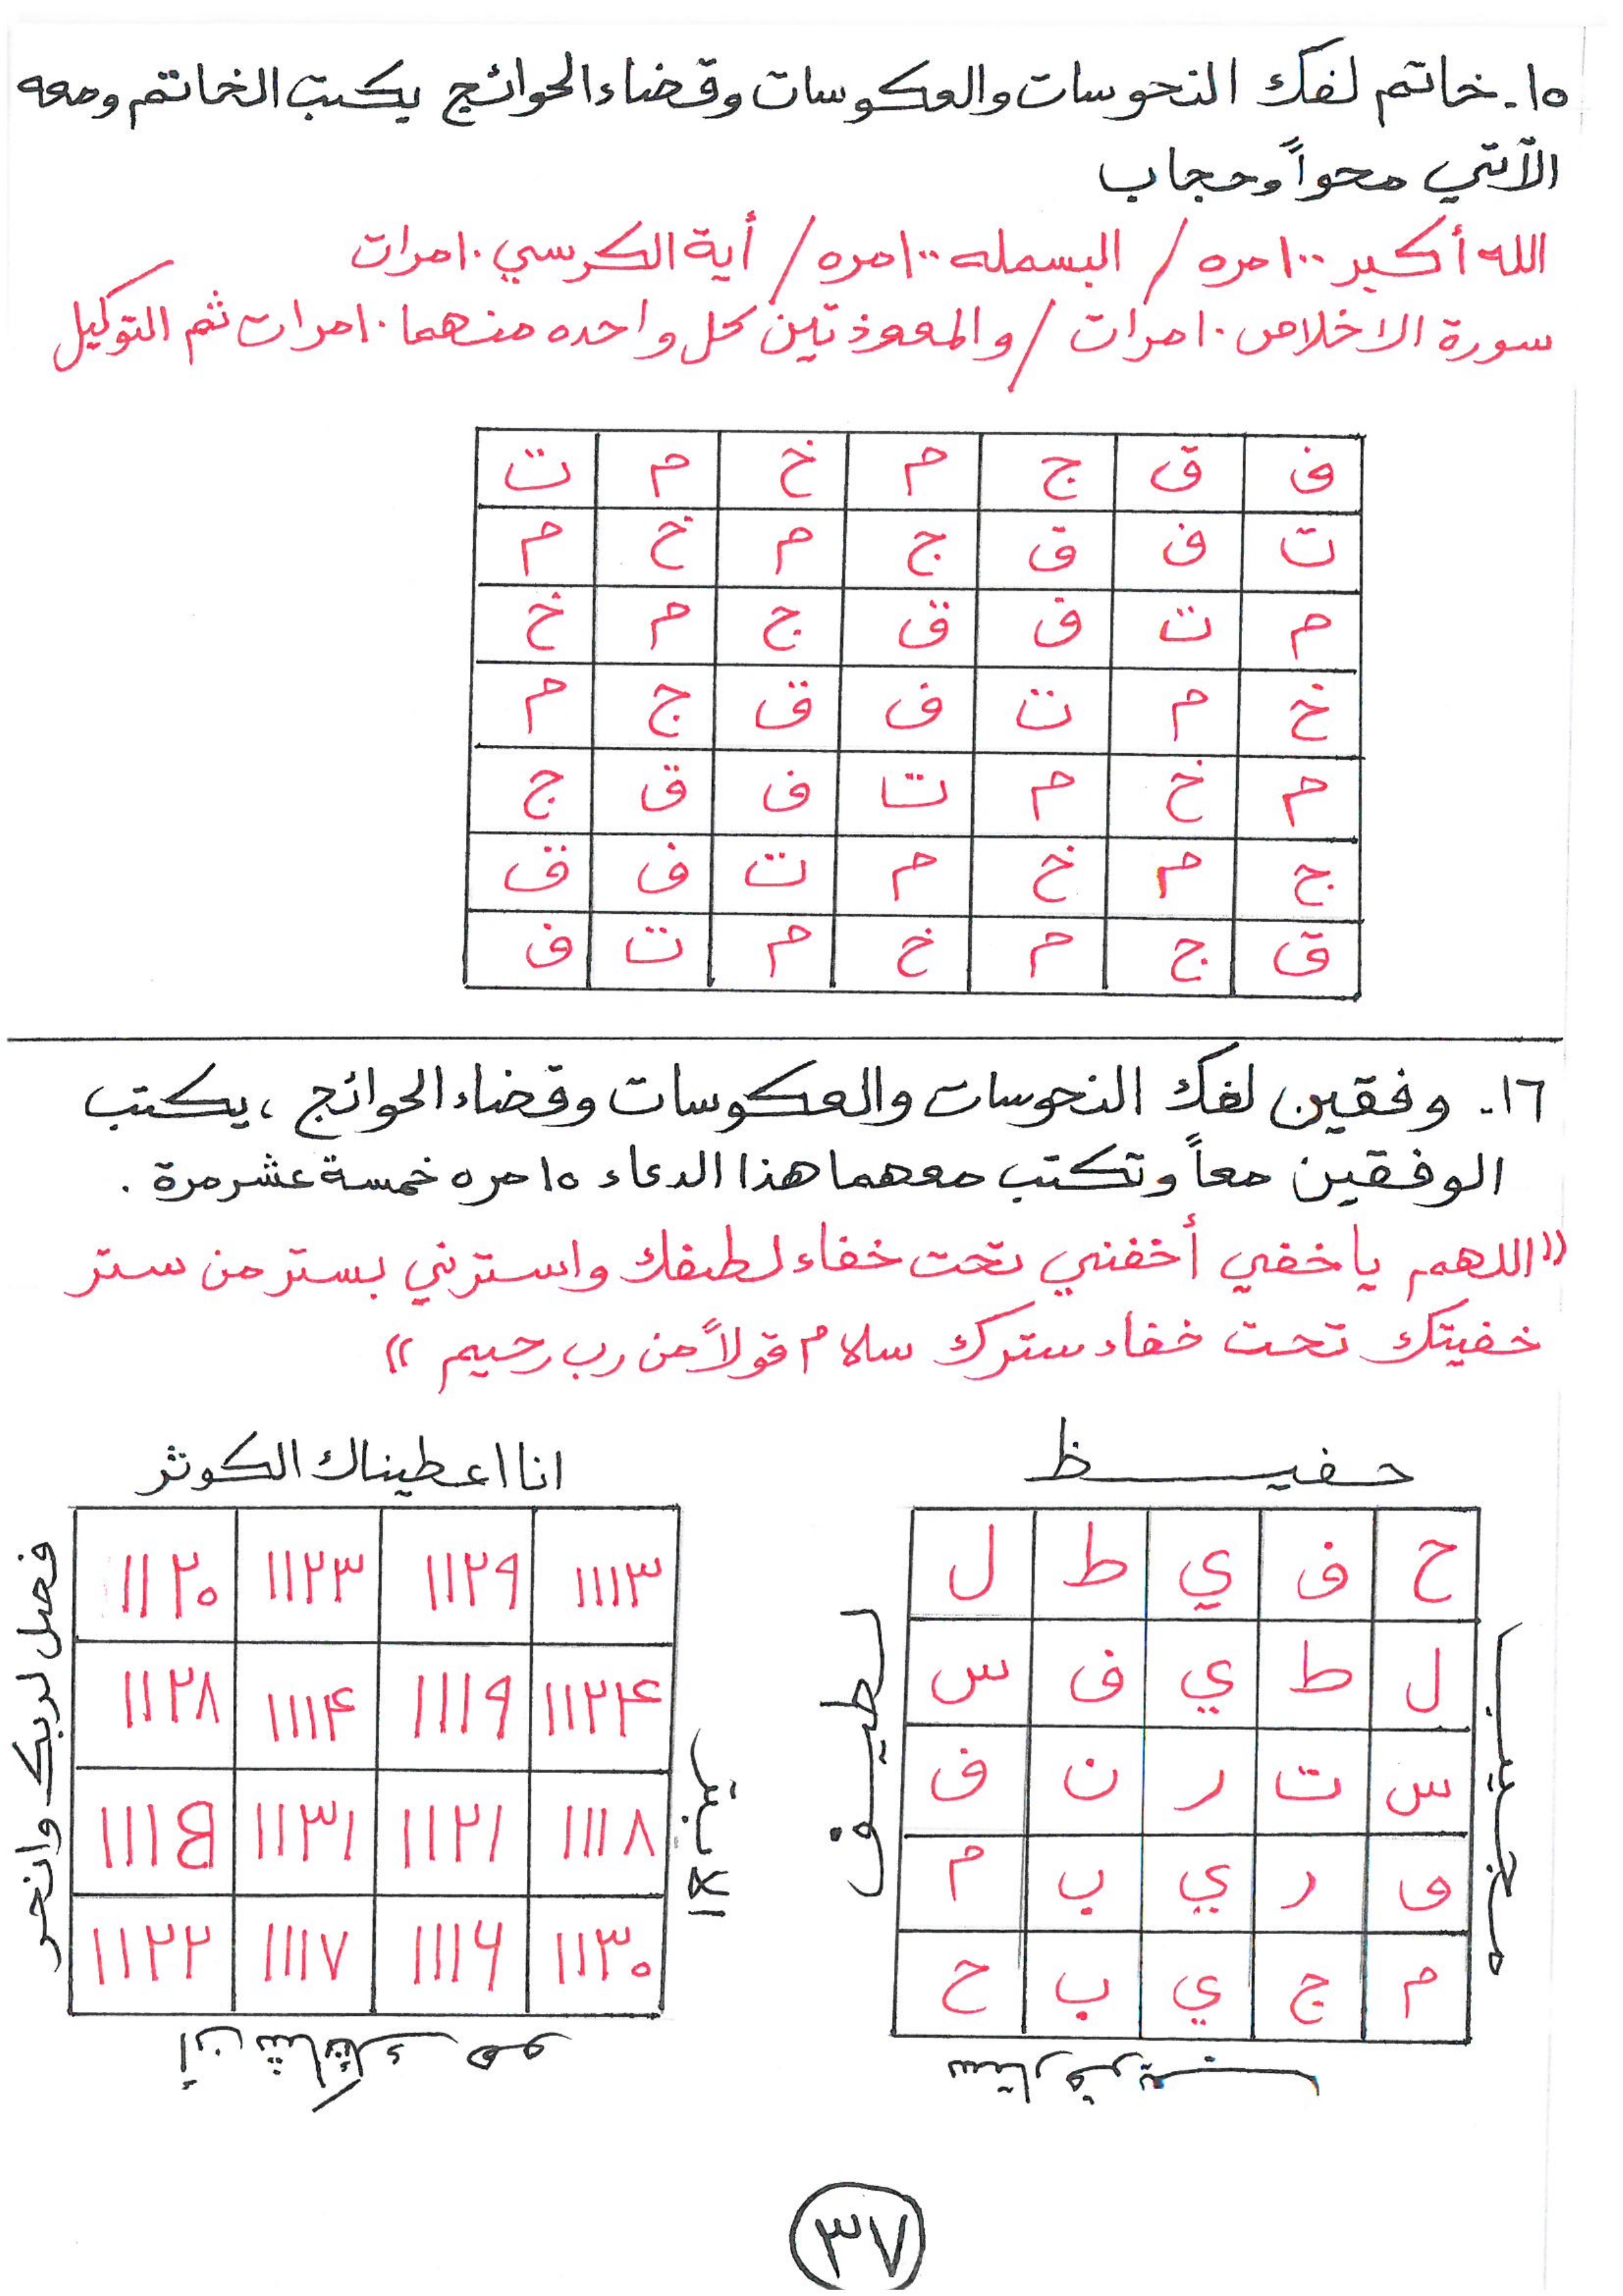 ١٥ـ خاتم لفك النحوسات والعكوسات وقضاء الحوائج يكتب الخاتم ومعه
الآتي محواً وحجاب
الله أكبر ١٠٠ مره / البسمله ١٠٠ مره / أية الكرسي ١٠ مرات
سورة الاخلاص ١٠ مرات / والمعوذتين كل واحده منهما ١٠ مرات ثم التوكيل
ف ق ج م خ م ت
ت ف ق ج م خ م
م ت ف ق ج م خ
خ م ت ف ق ج م
م خ م ت ف ق ج
ج م خ م ت ف ق
ق ج م خ م ت ف
١٦ـ وفقين لفك النحوسات والعكوسات وقضاء الحوائج ، يكتب
الوفقين معاً وتكتب معهما هذا الدعاء ١٥ مره خمسة عشر مرة .
((اللهم ياخفي أخفني تحت خفاء لطفك واسترني بستر من ستر
خفيتك تحت خفاء سترك سلام قولاً من رب رحيم ))
حفيظ
ح ف ي ط ل
ل ط ي ف س
س ت ر ن ف
ف ر ي ب م
م ج ي ب ح
مجيب
لطيف
ستار قريب
انا اعطيناك الكوثر
١١١٣ ١١٢٩ ١١٢٣ ١١٢٠
١١٢۴ ١١١٩ ١١١۴ ١١٢٨
١١١٨ ١١٢١ ١١٣١ ١١١٥
١١٣٠ ١١١۶ ١١١٧ ١١٢٢
فصل لربك وانحر
أن شانئك هو
الابتر
٣٧